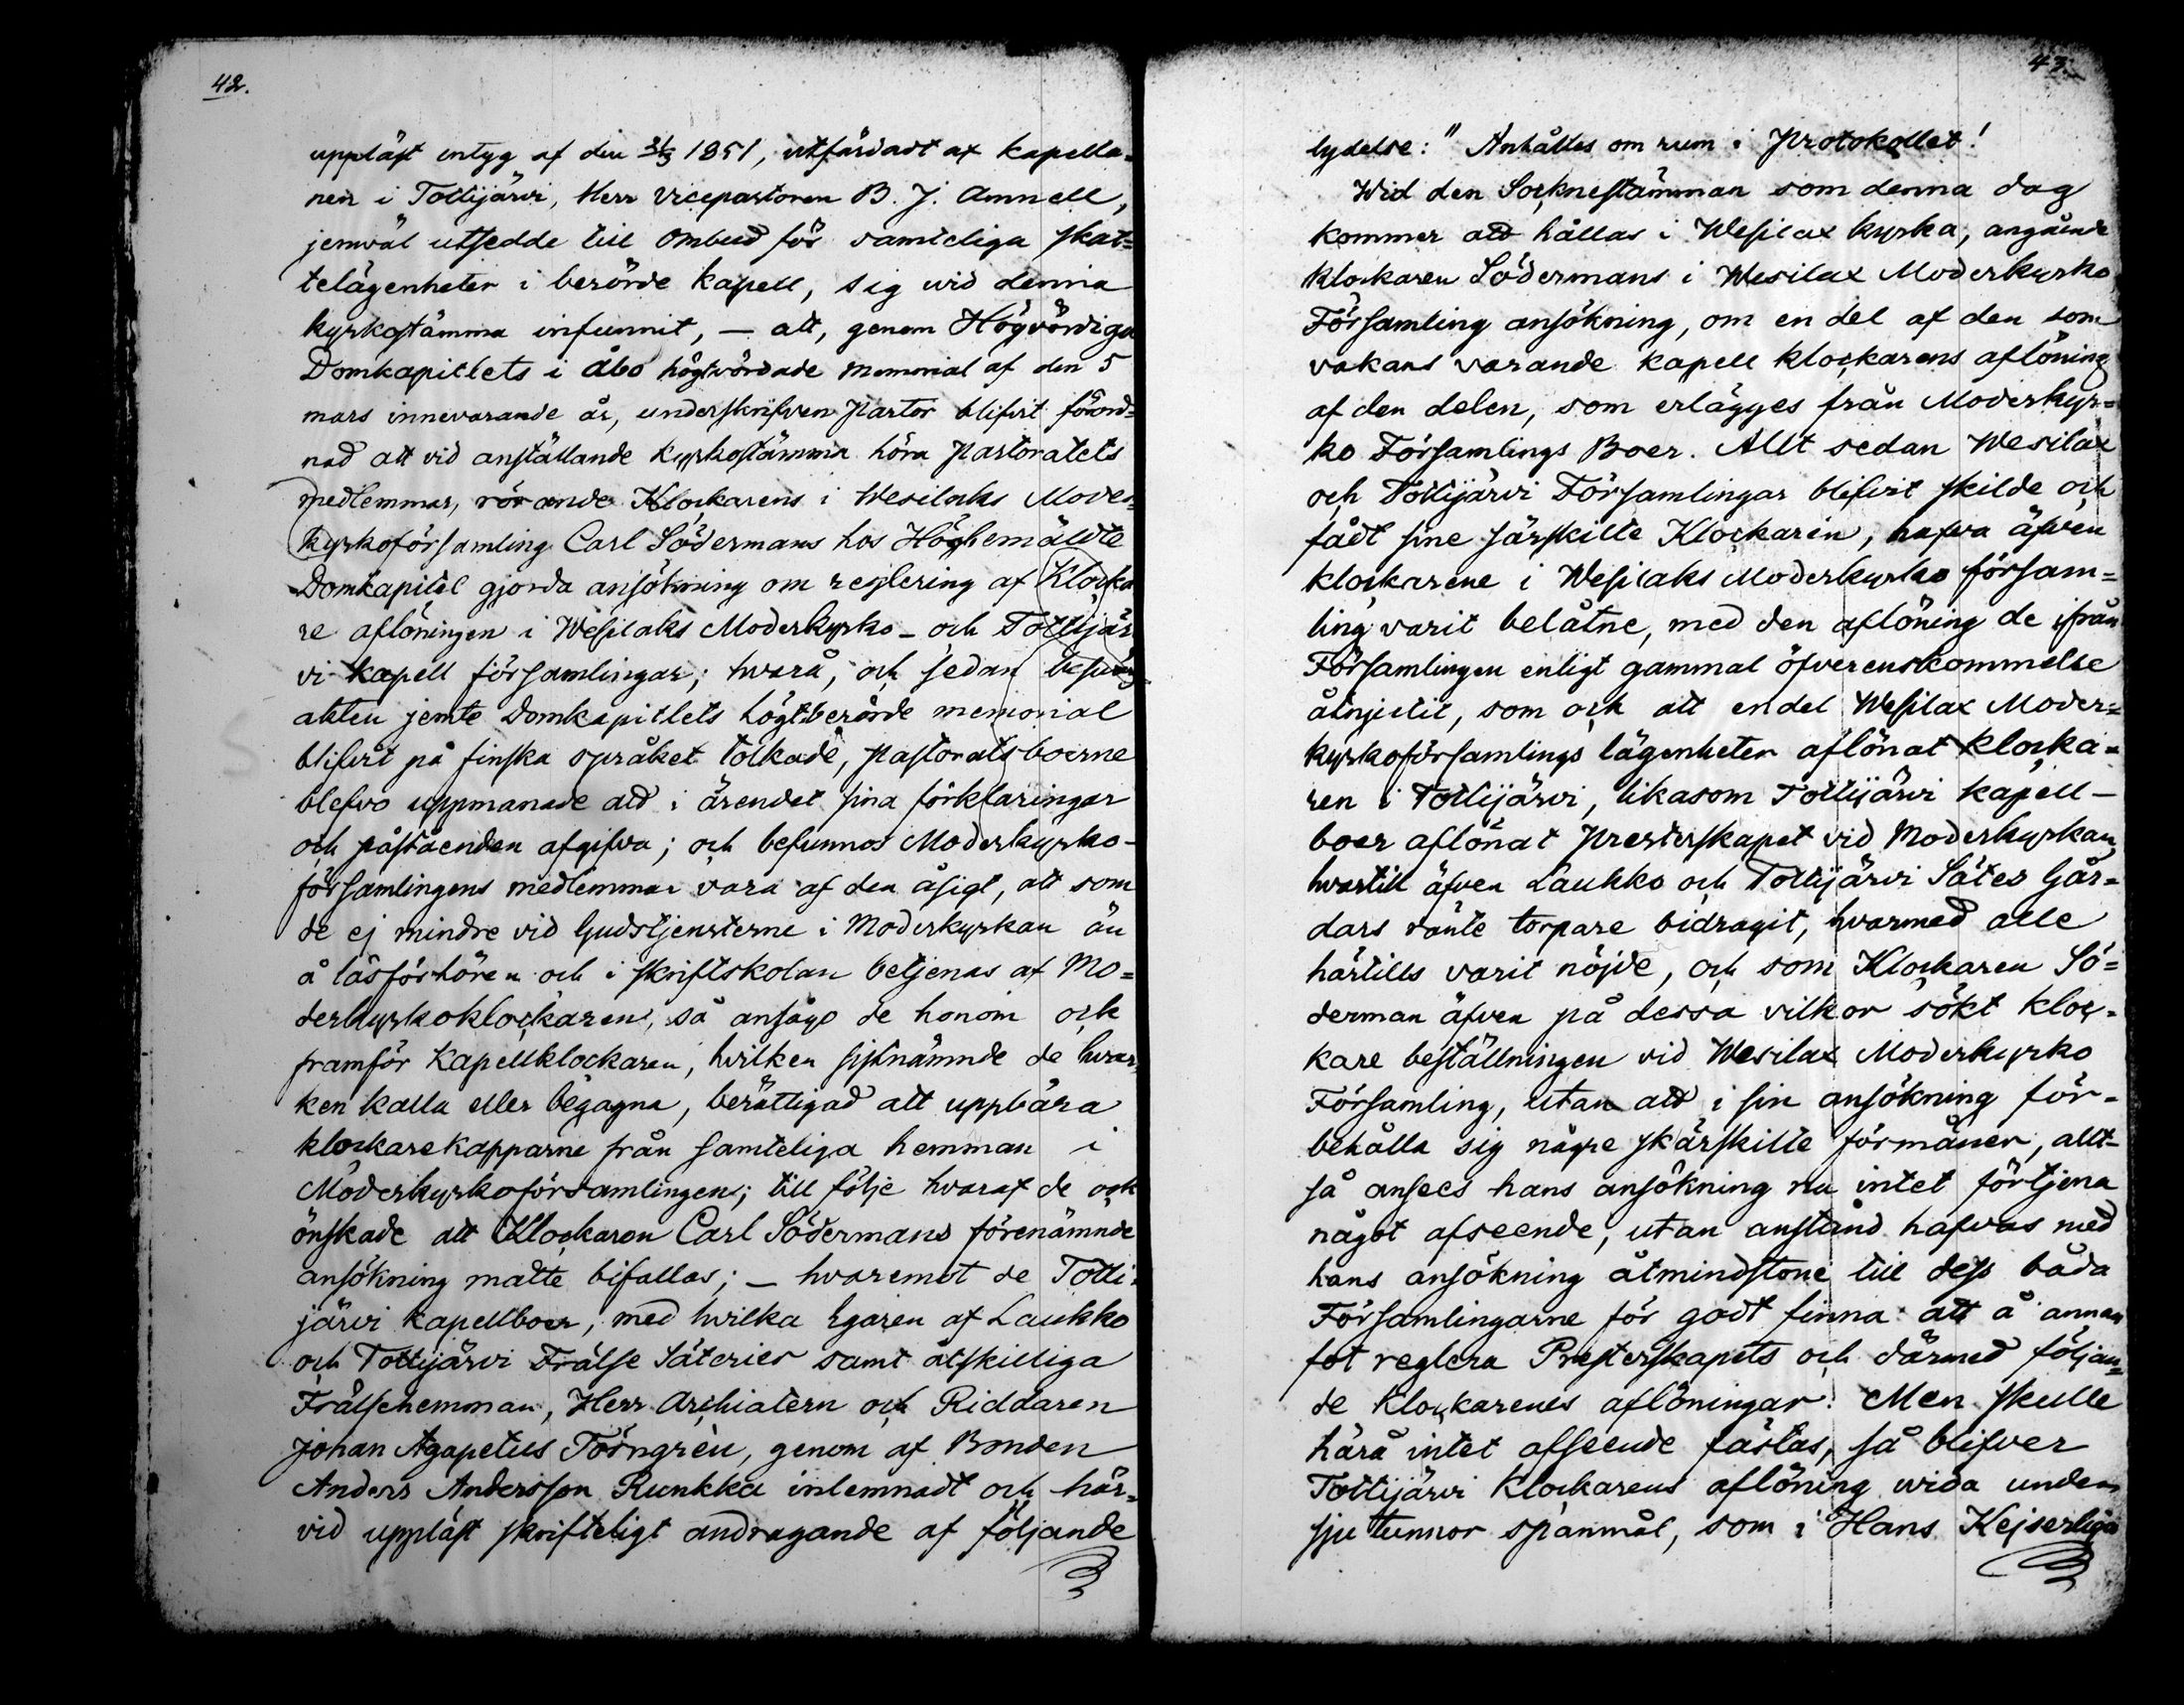 42.
uppläst intyg af den 31/3 1851, utfärdadt af kapella-
nen i Tottijärvi, Herr Vicepastoren B. J. Amnell,
jemväl utsedde till ombud för samteliga skat=
telägenheter i berörde kapell, sig wid denna
kyrkostämma infunnit, — att, genom Högvördiga
Domkapitlets i Åbo högtvördade memorial af den 5
mars innevarande år, underskrifven Pastor blifvit förord=
nad att vid anställande kyrkostämma höra Pastoratets
medlemmar, rörande Klockarens i Wesilaks Moder=
kyrkoförsamling Carl Södermans hos Högbemäldte
Domkapitel gjorda ansökning om reglering af Klocka
re aflöningen i Wesilaks Moderkyrko- och Tottijär
vi kapell församlingar; hvarå, och sedan besvärs
akten jemte Domkapitlets högtberörde memorial
blifvit på finska språket tolkade, pastoratsboerne
blefvo uppmanade att i ärendet sina förklaringar
och påståenden afgifva; och befunnos Moderkyrko-
församlingens medlemmar vara af den åsigt, att som
de ej mindre vid Gudstjensterne i Moderkyrkan än
å läsförhören och i skriftskolan betjenas af Mo=
derkyrkoklockaren, så ansågo de honom ock
framför Kapellklockaren, hvilken sistnämnde de hvar=
ken kalla eller begagna, berättigad att uppbära
klockarekapparne från samteliga hemman i
Moderkyrkoförsamlingen; till följe hvaraf de ock
önskade att Klockaren Carl Södermans förenämnde
ansökning måtte bifallas; — hvaremot de Totti-
järvi kapellboer, med hvilka Egaren af Laukko
och Tottijärvi Frälse Säterier samt åtskilliga
Frälsehemman, Herr Archiatern och Riddaren
Johan Agapetus Törngrén, genom af Bonden
Anders Andersson Runkka inlemnadt och här=
vid uppläst skrifteligt andragande af följande
43.
lydelse: " Anhålles om rum i Protokollet!
Wid den Socknestämman som denna dag
kommer att hållas i Wesilax kyrka, angående
klockaren Södermans i Wesilax Moderkyrko
Församling ansökning, om en del af den som
vakans varande kapell klockarens aflöning
af den delen, som erlägges från Moderkyr=
ko Församlings Boer. Allt sedan Wesilax
och Tottijärvi Församlingar blifvit skilde och
fådt sine särskilte Klockaren, hafva äfven
klockarene i Wesilaks Moderkyrko församl=
ling varit belåtne, med den aflöning de ifrån
Församlingen enligt gammal öfverenskommelse
åtnjutit, som ock att endel Wesilax Moder=
kyrkoförsamlings lägenheter aflönat klocka=
ren i Tottijärvi, likasom Tottijärvi kapell-
boer aflönat Presterskapet vid Moderkyrkan,
hvartill äfven Laukko och Tottijärvi Säter Går=
dars ränte torpare bidragit, hvarmed alle
härtills varit nöjde, och som Klockaren Sö=
derman äfven på dessa vilkor sökt kloc-
kare beställningen vid Wesilax Moderkyrko
Församling, utan att i sin ansökning för-
behålla sig någre skärskilte förmåner, allt-
så ansees hans ansökning nu intet förtjena
något afseende, utan anstånd hafvas med
hans ansökning åtmindstone till dess båda
Församlingarne för godt finna att å annan
fot reglera Presterskapets och därmed följan=
de Klockarenes aflöningar. Men skulle
härå intet afseende fästas, så blifver
Tottijärvi Klockarens aflöning wida under
sju tunnor spanmål, som i Hans Kejserliga